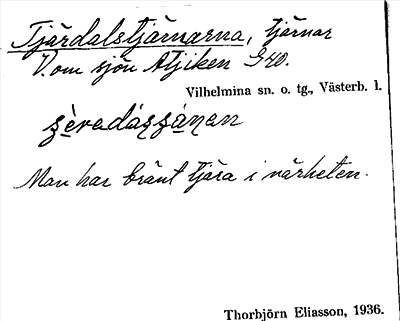 Tjärdalstjärnarna, tjärnar
V. om sjön Atjiken S 40.
Vilhelmina sn. o. tg., Västerb. l.
Man har bränt tjära i närheten.
Thorbjörn Eliasson, 1936.